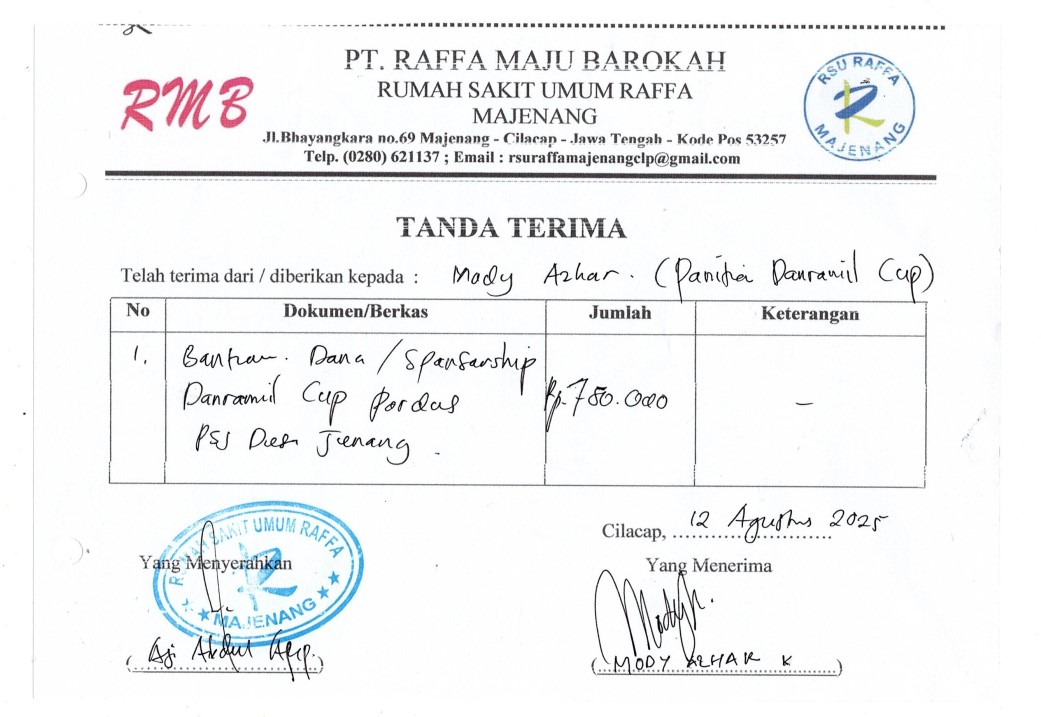 PT. RAFFA MAJU BAROKAH
RMB
RUMAH SAKIT UMUM RAFFA
MAJENANG
Jl.Bhayangkara no.69 Majenang - Cilacap - Jawa Tengah - Kode Pos 53257
Telp. (0280) 621137 ; Email : rsuraffamajenangclp@gmail.com
RSU RAFFA
MAJENANG
TANDA TERIMA
Telah terima dari / diberikan kepada : Mody Azhar. (Panitia Danramil Cup)
No Dokumen/Berkas Jumlah Keterangan
1. Bantuan. Dana / Sponsorship
Danramil Cup Pordas
Desa Jenang.
Rp. 750.000 –
Cilacap, 12 Agustus 2025
Yang Menyerahkan Yang Menerima
RUMAH SAKIT UMUM RAFFA
MAJENANG
(Aji Abdul) (MODY AZHAR K)